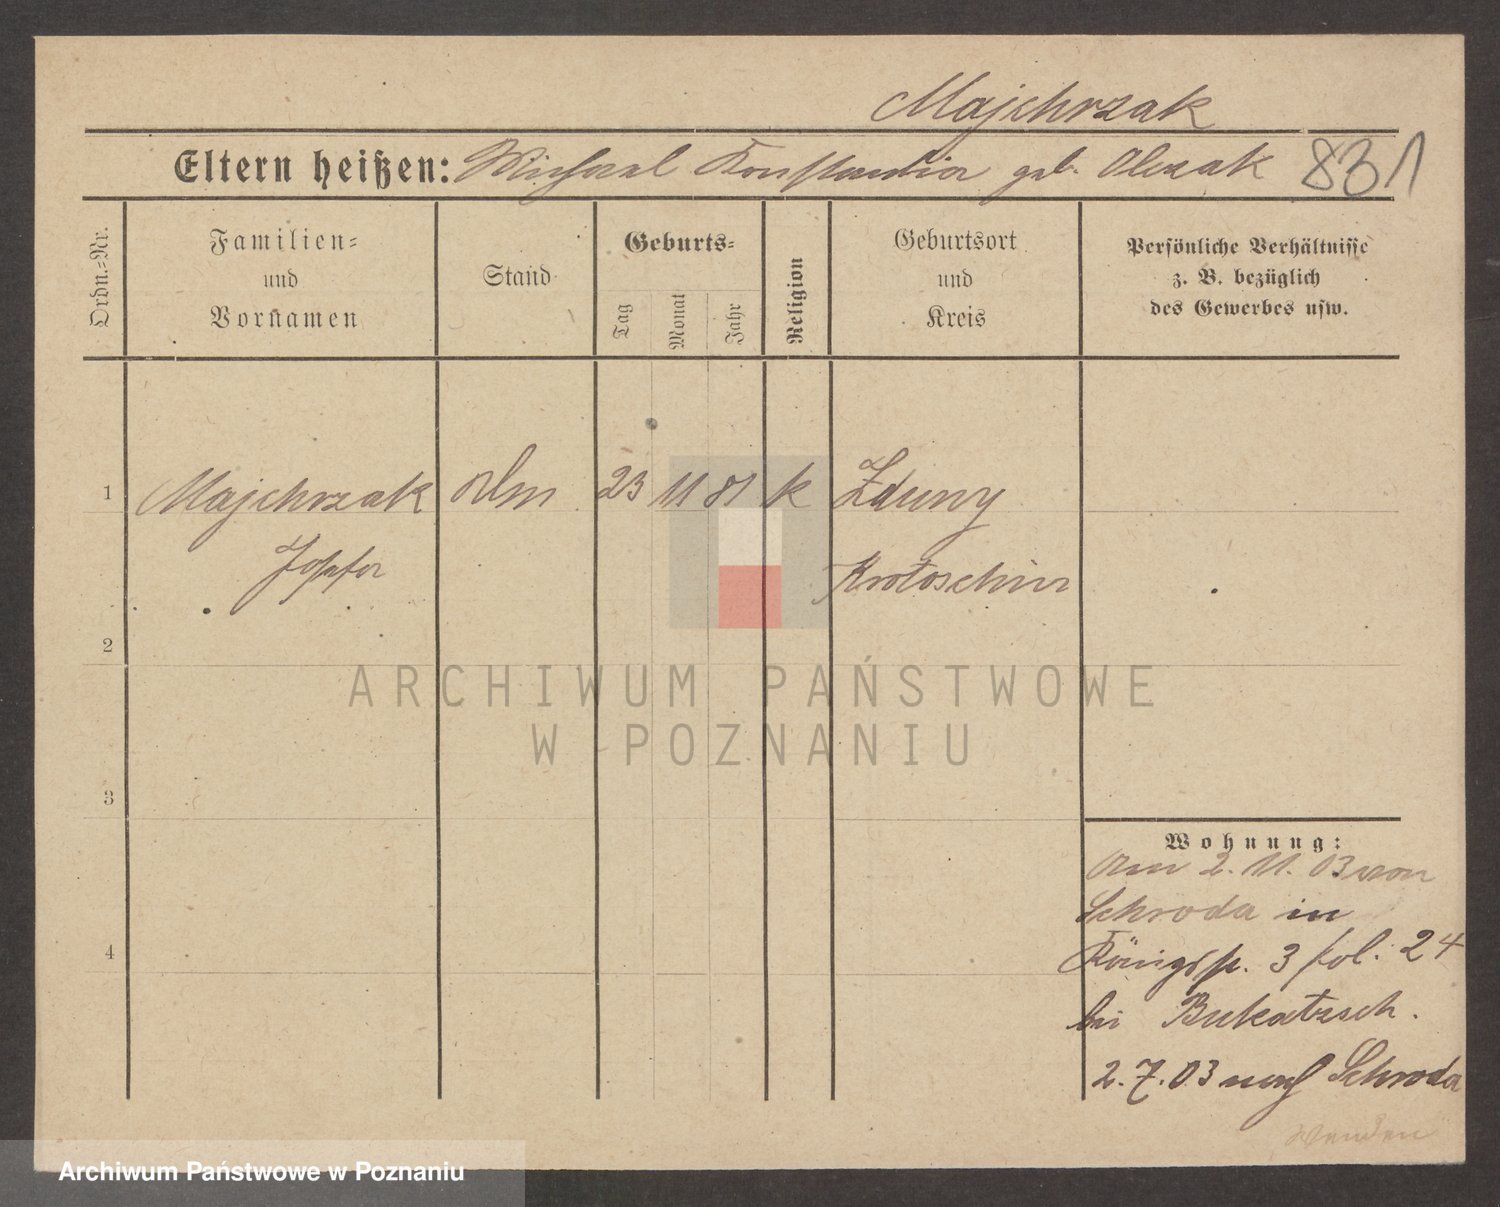 Majchrzak
Eltern heißen: Michael Konstantia geb. Olczak 831
Ordn.=Nr.
Familien=
und
Vornamen
Stand
Geburts=
Tag
Monat
Jahr
Religion
Geburtsort
und
Kreis
Persönliche Verhältnisse
z. B. bezüglich
des Gewerbes usw.
1 Majchrzak 23 11 81 k Zduny
Josefa Krotoschin
2
3
4
Wohnung:
Am 2. 11. 03 von
Schroda in
Königspl. 3 fol. 24
bei Bukatzsch.
2. 7. 03 nach Schroda
ARCHIWUM PAŃSTWOWE
W POZNANIU
Archiwum Państwowe w Poznaniu